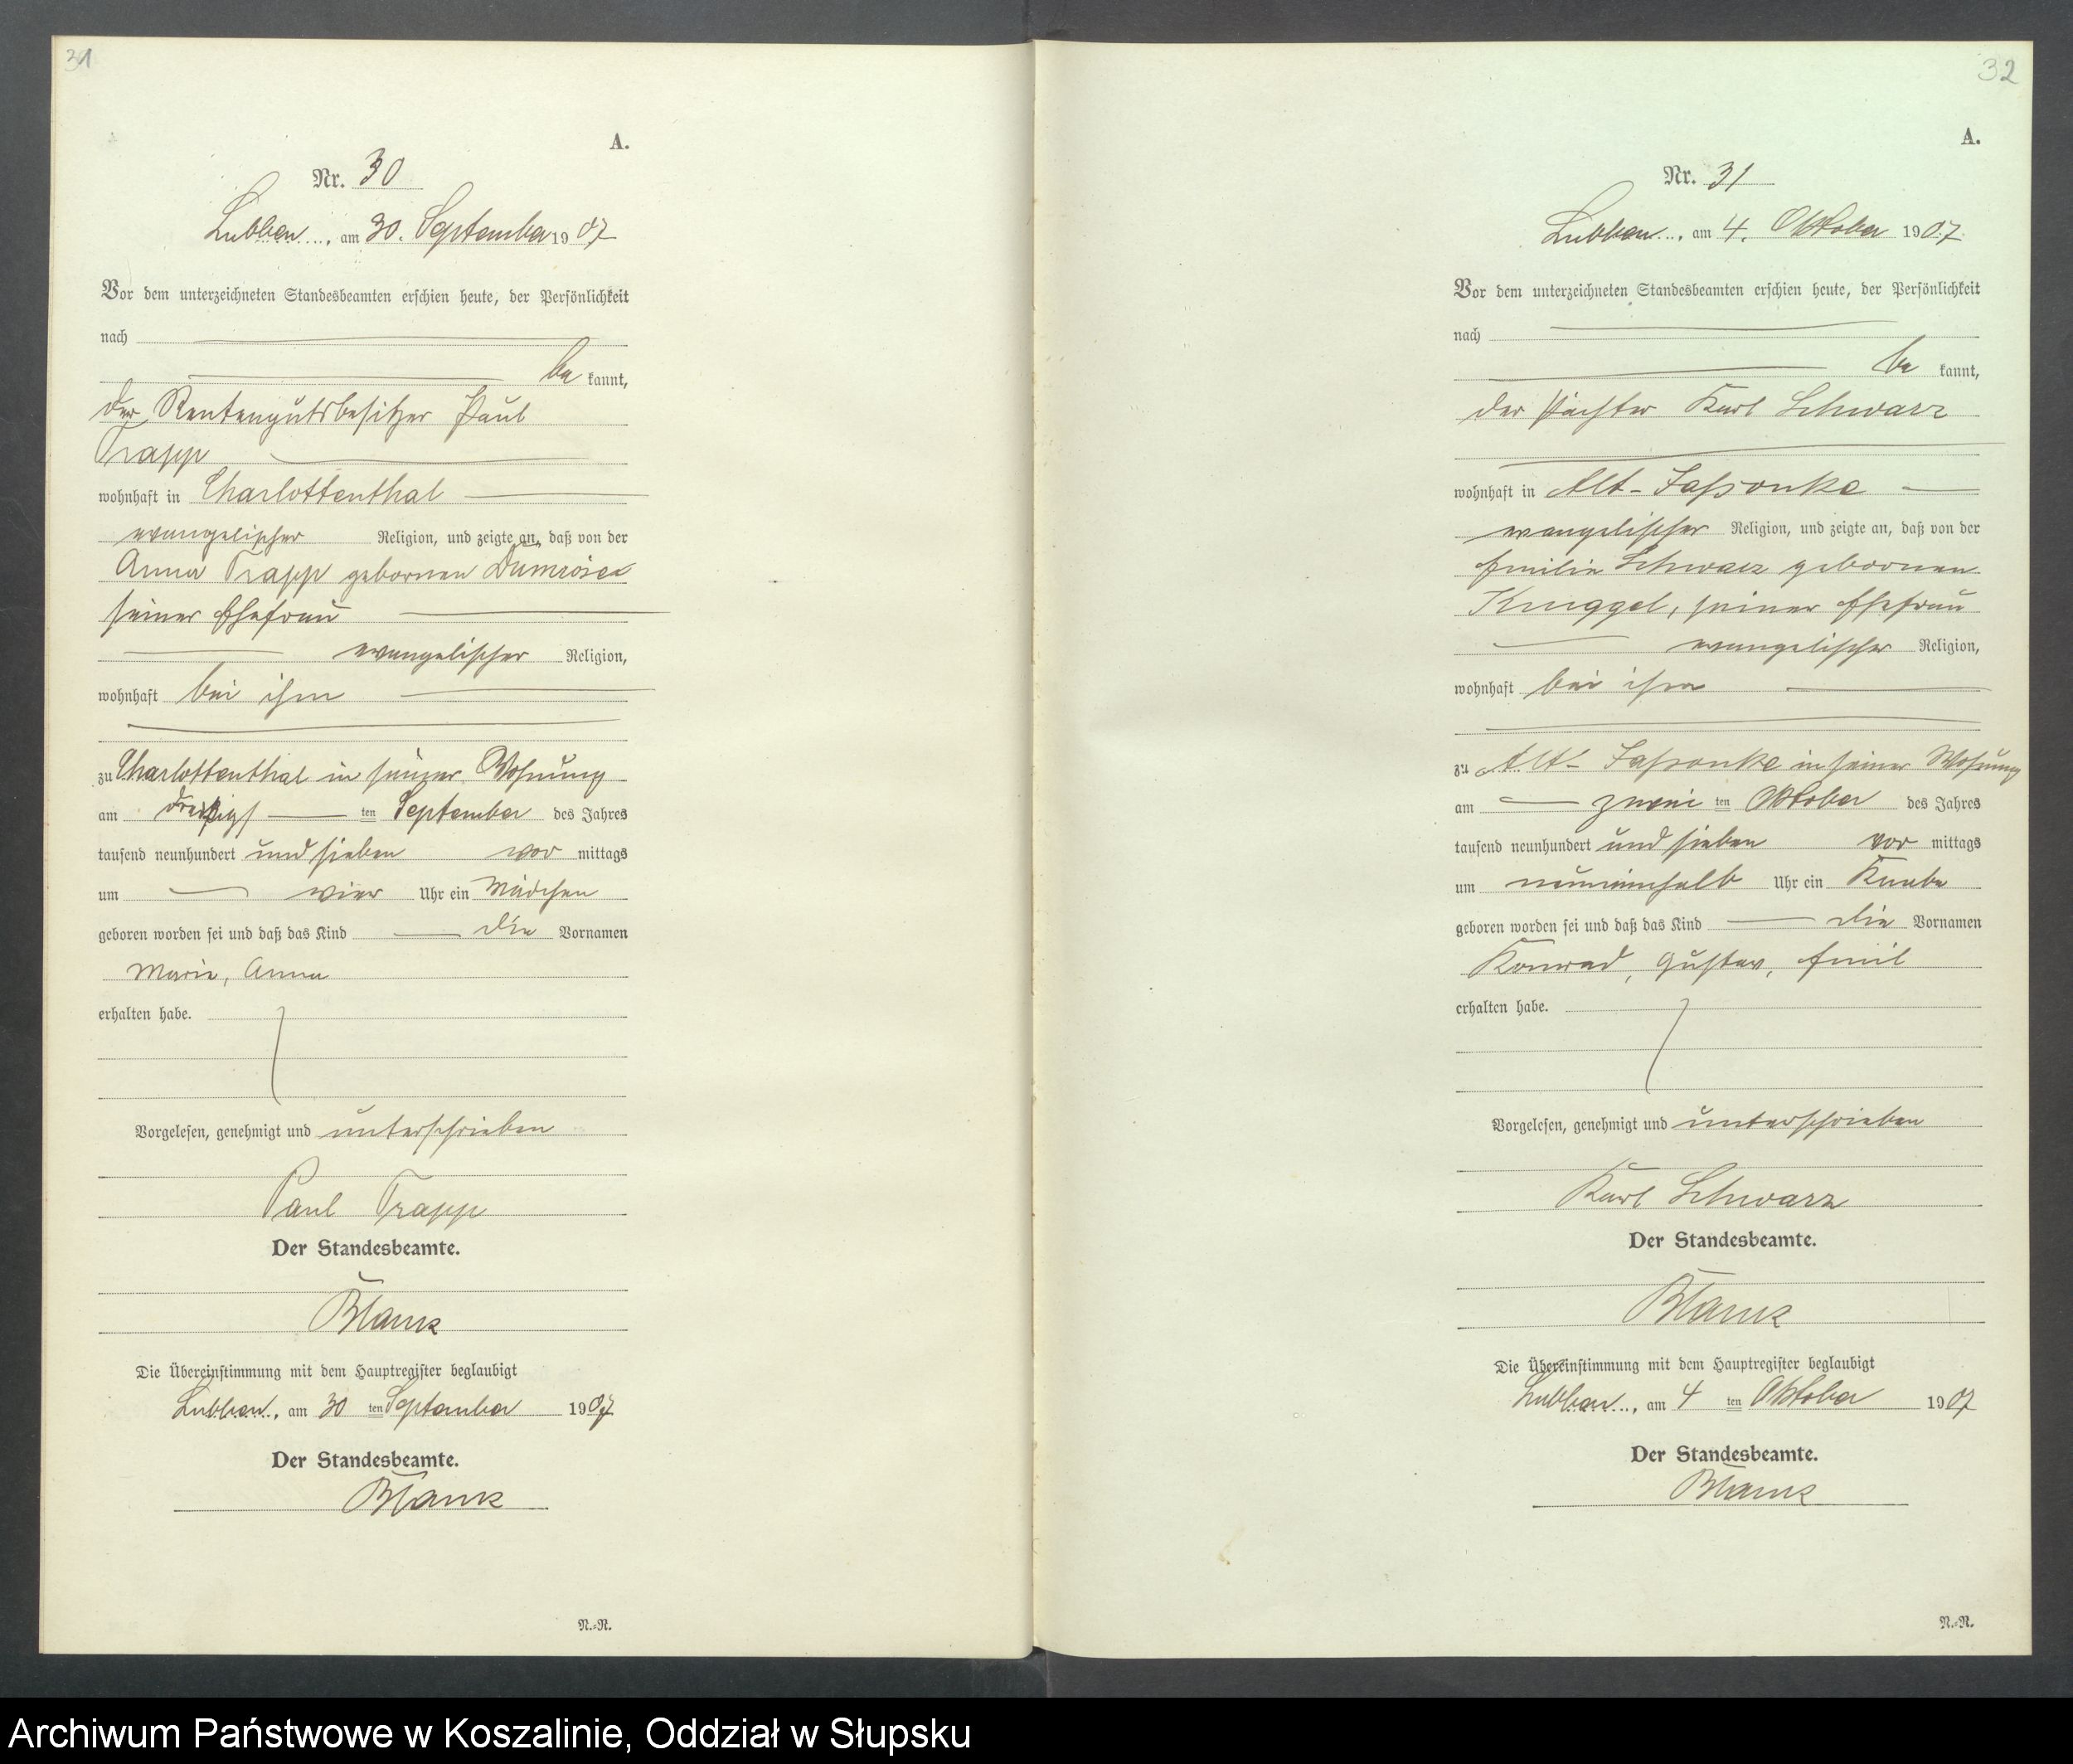 31
A.
Nr. 30
Lubben, am 30. September 1907
Vor dem unterzeichneten Standesbeamten erschien heute, der Persönlichkeit
nach
be kannt,
der Rentengutsbesitzer Paul
Trapp
wohnhaft in Charlottenthal
evangelischer Religion, und zeigte an, daß von der
Anna Trapp gebornen Dumröse
seiner Ehefrau
evangelischer Religion,
wohnhaft bei ihm
zu Charlottenthal in seiner Wohnung
am dreißigs ten September des Jahres
tausend neunhundert und sieben vor mittags
um vier Uhr ein Mädchen
geboren worden sei und daß das Kind die Vornamen
Marie, Anna
erhalten habe.
Vorgelesen, genehmigt und unterschrieben
Paul Trapp
Der Standesbeamte.
Blank
Die Übereinstimmung mit dem Hauptregister beglaubigt
Lubben, am 30 ten September 1907
Der Standesbeamte.
Blank
N.=R.
32
A.
Nr. 31
Lubben, am 4. Oktober 1907
Vor dem unterzeichneten Standesbeamten erschien heute, der Persönlichkeit
nach
be kannt,
der Pächter Karl Schwarz
wohnhaft in Alt-Jassonke
evangelischer Religion, und zeigte an, daß von der
Emilie Schwarz gebornen
Knuggel, seiner Ehefrau
evangelischer Religion,
wohnhaft bei ihm
zu Alt-Jassonke in seiner Wohnung
am zwei ten Oktober des Jahres
tausend neunhundert und sieben vor mittags
um neuneinhalb Uhr ein Knabe
geboren worden sei und daß das Kind die Vornamen
Konrad, Gustav, Emil
erhalten habe.
Vorgelesen, genehmigt und unterschrieben
Karl Schwarz
Der Standesbeamte.
Blank
Die Übereinstimmung mit dem Hauptregister beglaubigt
Lubben, am 4 ten Oktober 1907
Der Standesbeamte.
Blank
N.=R.
Archiwum Państwowe w Koszalinie, Oddział w Słupsku